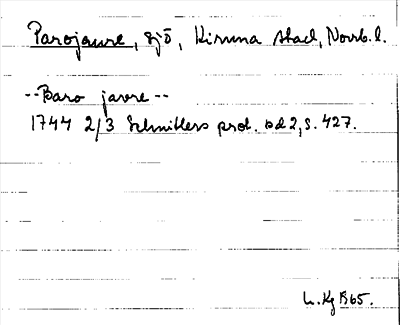 Parojaure, sjö, Kiruna stad, Norrb. l.
--Baro javre--
1744 2/3 Schnitlers prot. bd 2, s. 427.
L. Kg 1965.